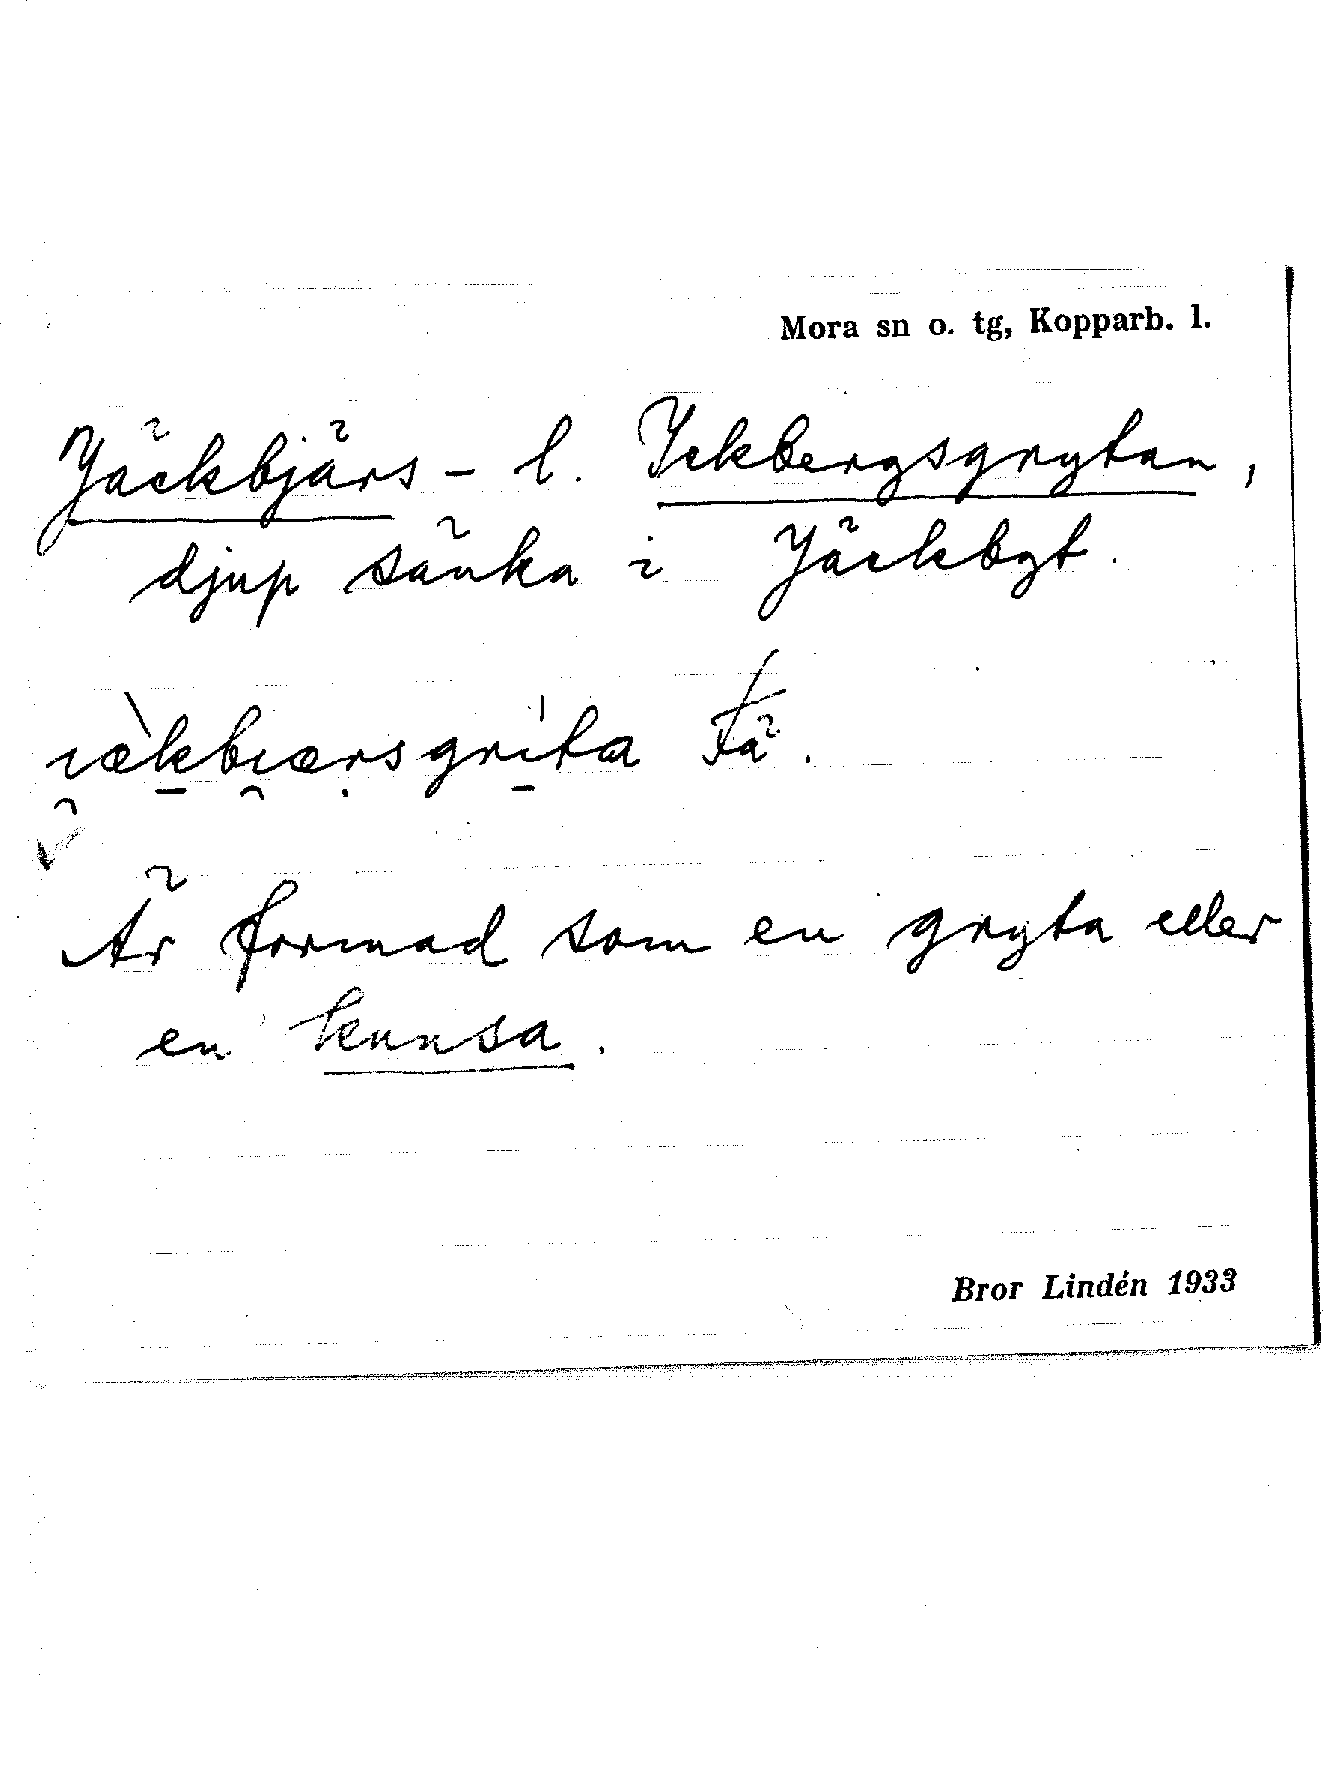 Mora sn o. tg, Kopparb. l.
Jäckbjärs- l. Ickbergsgrytan,
djup sänka i Jäckbgt.
Fä.
Är formad som en gryta eller
en kunsa.
Bror Lindén 1933